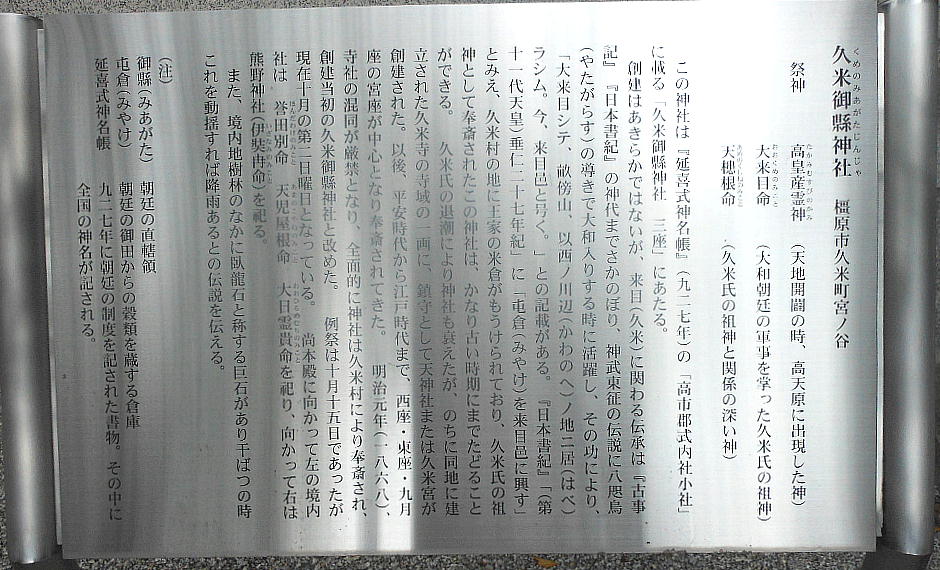 久米御縣神社 橿原市久米町宮ノ谷
くめのみあがたじんじゃ
祭神 高皇産霊神 (天地開闢の時、高天原に出現した神)
たかみむすびのかみ
大来目命 (大和朝廷の軍事を掌った久米氏の祖神)
おおくめのみこと
天穂根命 (久米氏の祖神と関係の深い神)
この神社は『延喜式神名帳』(九二七年)の「高市郡式内社小社」
に載る「久米御縣神社 三座」にあたる。
創建はあきらかではないが、来目(久米)に関わる伝承は『古事
記』『日本書紀』の神代までさかのぼり、神武東征の伝説に八咫烏
(やたがらす)の導きで大和入りする時に活躍し、その功により、
「大来目シテ、畝傍山、以西ノ川辺(かわのへ)ノ地ニ居(はべ)
ラシム。今、来目邑と号く。」との記載がある。『日本書紀』「(第
十一代天皇)垂仁二十七年紀」に「屯倉(みやけ)を来目邑に興す」
とみえ、久米村の地に王家の米倉がもうけられており、久米氏の祖
神として奉斎されたこの神社は、かなり古い時期にまでたどること
ができる。 久米氏の退潮により神社も衰えたが、のちに同地に建
立された久米寺の寺域の一画に、鎮守として天神社または久米宮が
創建された。以後、平安時代から江戸時代まで、西座・東座・九月
座の宮座が中心となり奉斎されてきた。 明治元年(一八六八)、
寺社の混同が厳禁となり、全面的に神社は久米村により奉斎され、
創建当初の久米御縣神社と改めた。 例祭は十月十五日であったが
現在十月の第二日曜日となっている。 尚本殿に向かって左の境内
社は 誉田別命 天児屋根命 大日霊貴命を祀り、向かって右は
熊野神社(伊奘冉命)を祀る。
また、境内地樹林のなかに臥龍石と称する巨石があり干ばつの時
これを動揺すれば降雨あるとの伝説を伝える。
(注)
御縣(みあがた) 朝廷の直轄領
屯倉(みやけ) 朝廷の御田からの穀類を蔵する倉庫
延喜式神名帳 九二七年に朝廷の制度を記された書物。その中に
全国の神名が記される。